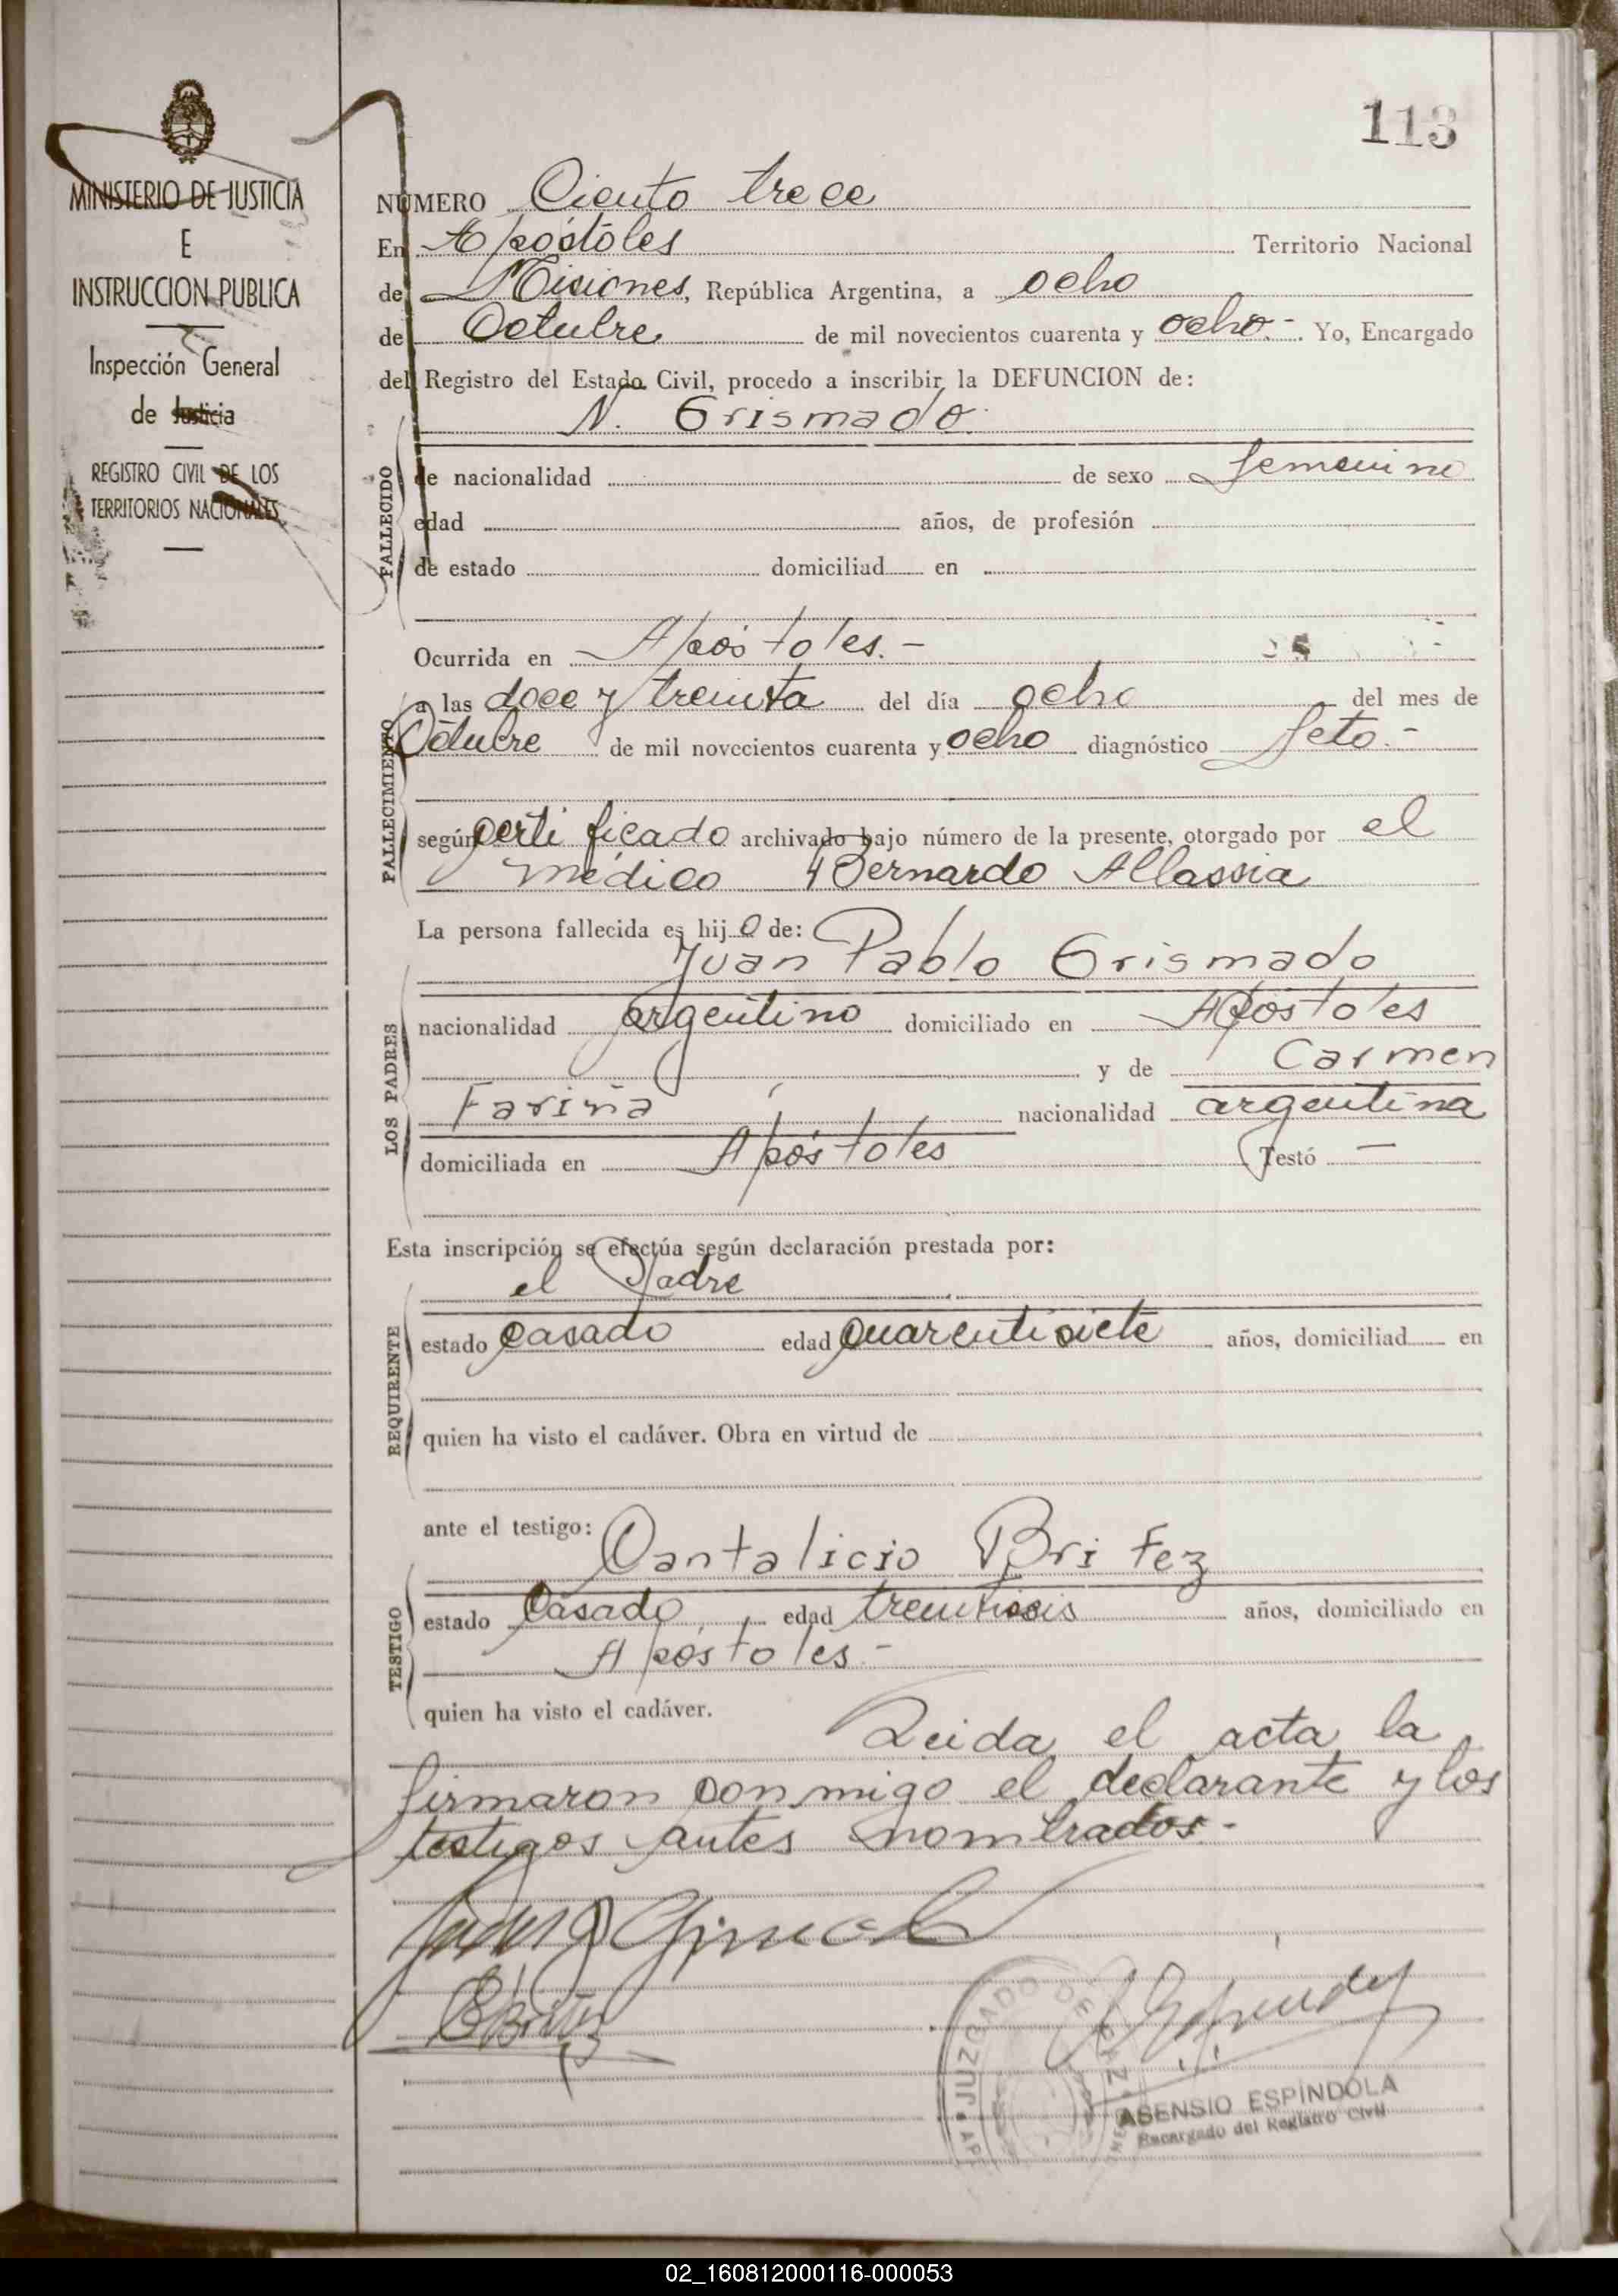 113
MINISTERIO DE JUSTICIA
E
INSTRUCCION PUBLICA
Inspección General
de Justicia
REGISTRO CIVIL DE LOS
TERRITORIOS NACIONALES
NÚMERO Ciento trece
En Apóstoles Territorio Nacional
de Misiones, República Argentina, a ocho
de Octubre de mil novecientos cuarenta y ocho.- Yo, Encargado
del Registro del Estado Civil, procedo a inscribir la DEFUNCION de:
N. Grismado.
FALLECIDO
de nacionalidad de sexo femenino
edad años, de profesión
de estado domiciliad en
Ocurrida en Apóstoles.-
FALLECIMIENTO
a las doce y treinta del día ocho del mes de
Octubre de mil novecientos cuarenta y ocho diagnóstico feto.-
según certificado archivado bajo número de la presente, otorgado por el
médico Bernardo Allassia
La persona fallecida es hijo de:
LOS PADRES
Juan Pablo Grismado
nacionalidad argentino domiciliado en Apóstoles
y de Carmen
Fariña nacionalidad argentina
domiciliada en Apóstoles Testó —
Esta inscripción se efectúa según declaración prestada por:
REQUIRENTE
el Padre
estado casado edad cuarentisiete años, domiciliad en
quien ha visto el cadáver. Obra en virtud de
ante el testigo:
TESTIGO
Cantalicio Britez
estado casado, edad treintiseis años, domiciliado en
Apóstoles-
quien ha visto el cadáver. Leida el acta la
firmaron conmigo el declarante y los
testigos antes nombrados.-
CBritez
JUZGADO DE PAZ
ASENSIO ESPÍNDOLA
Encargado del Registro Civil
02_160812000116-000053